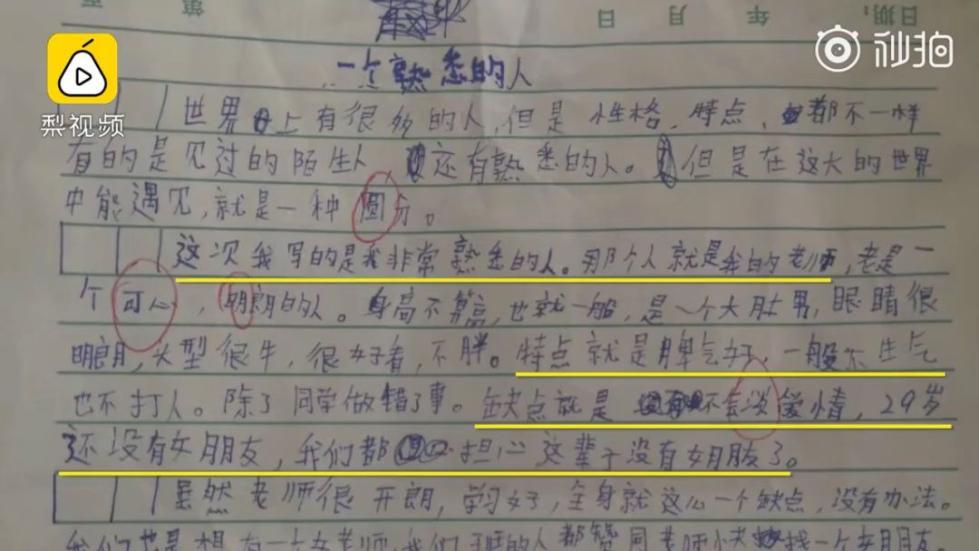 第 年 月 日 日期:
梨视频
秒拍
一个熟悉的人
世界上有很多的人,但是性格、特点、都不一样
有的是见过的陌生人 还有熟悉的人。但是在这大的世界
中能遇见,就是一种圆分。
这次我写的是我非常熟悉的人。那个人就是我的老师,老是一
个可心,明朗的人。身高不算高,也就一般,是一个大肚男,眼睛很
明朗,火型很牛,很好看,不胖。特点就是脾气好,一般不生气
也不打人。除了同学做错了事。缺点就是不会谈爱情,29岁
还没有女朋友,我们都担心这辈子没有女朋友了。
虽然老师很开朗,学习好,全身就这么一个缺点,没有办法。
我们也是想有一个女老师,我们班的人都赞同老师快找一个女朋友。